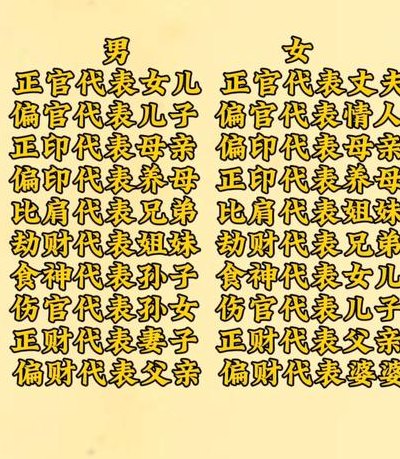 男 女
正官代表女儿 正官代表丈夫
偏官代表儿子 偏官代表情人
正印代表母亲 偏印代表母亲
偏印代表养母 正印代表养母
比肩代表兄弟 比肩代表姐妹
劫财代表姐妹 劫财代表兄弟
食神代表孙子 食神代表女儿
伤官代表孙女 伤官代表儿子
正财代表妻子 正财代表父亲
偏财代表父亲 偏财代表婆婆